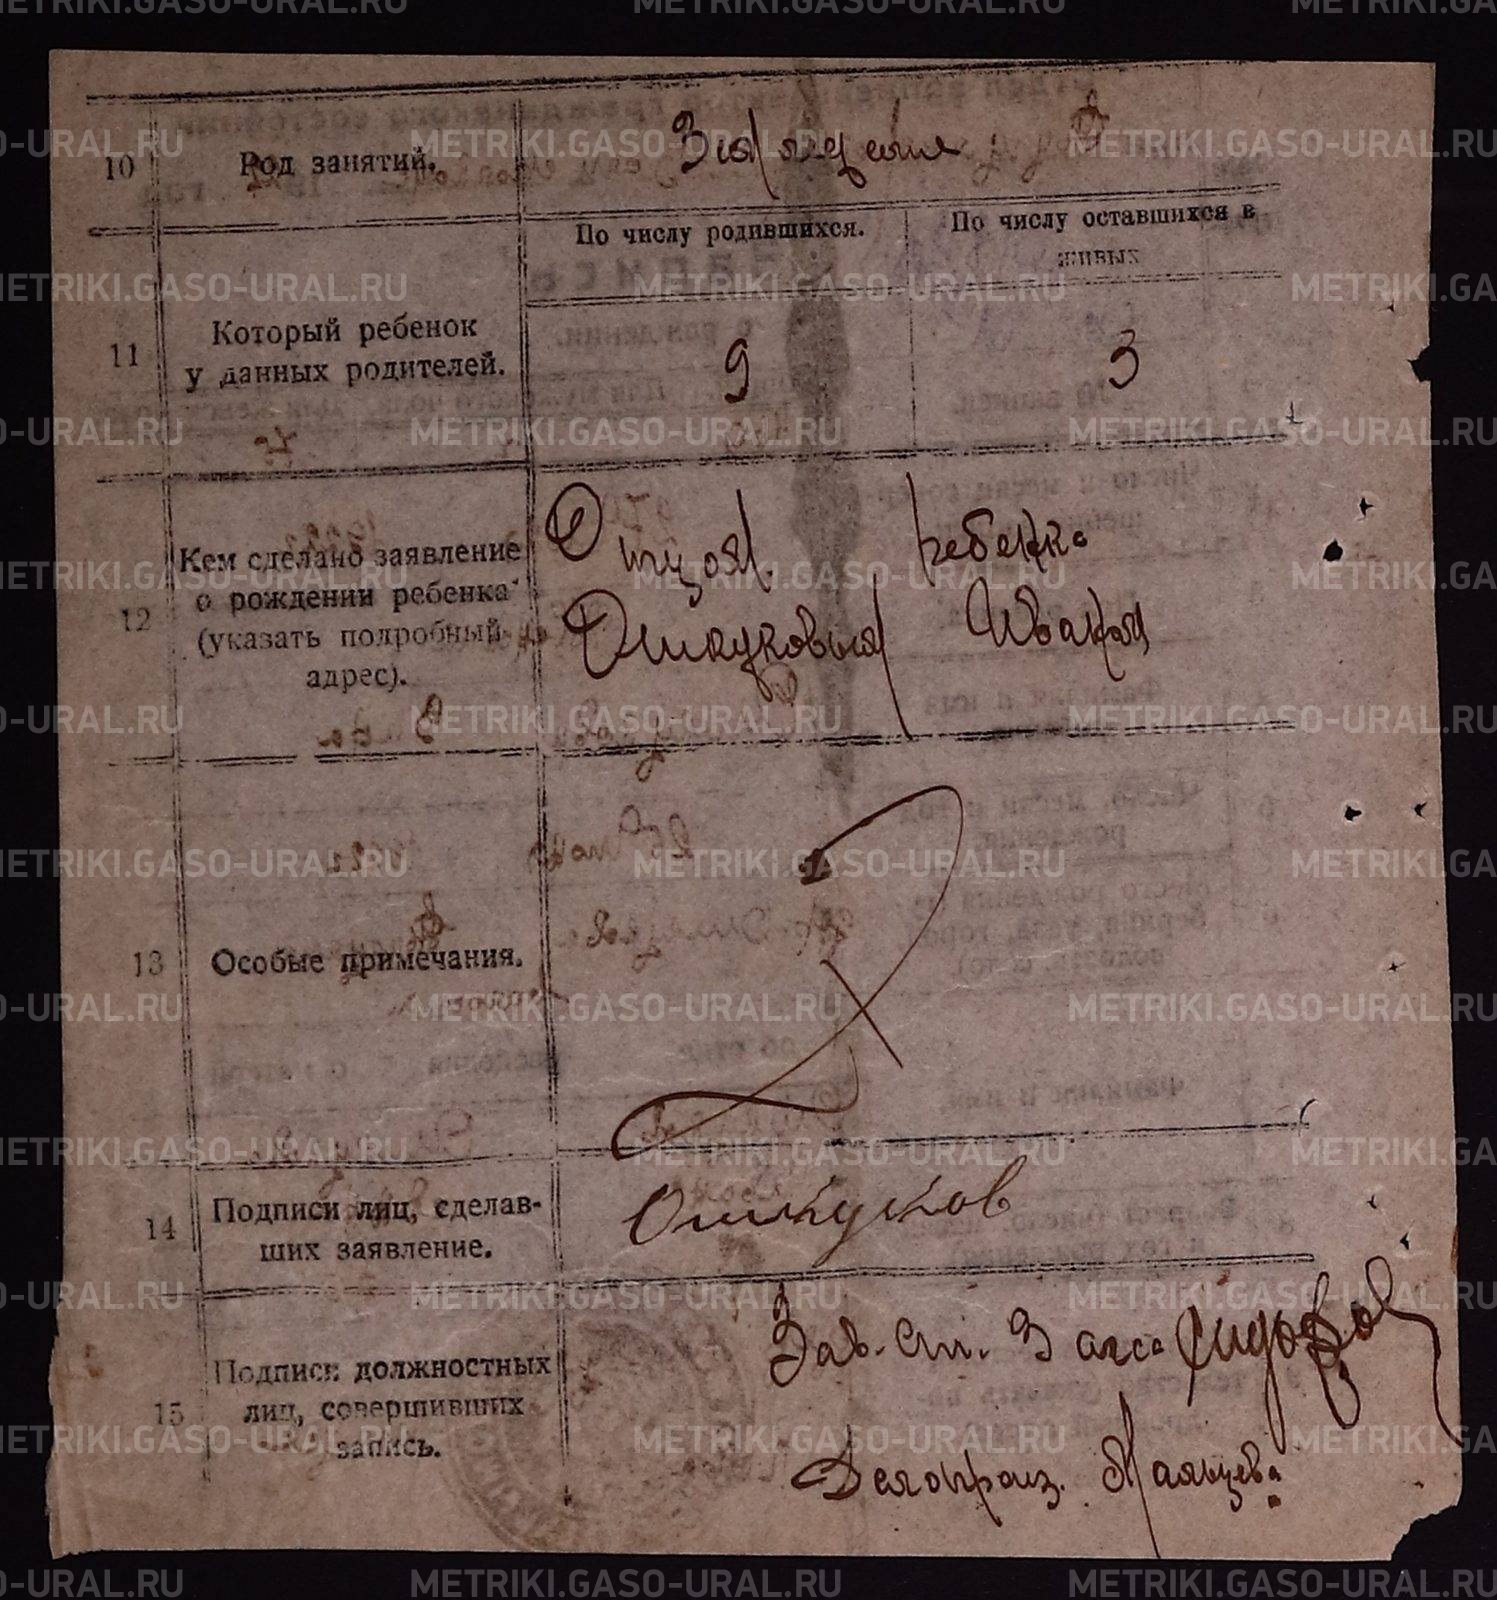 10 Род занятий. Земледелие
11 Который ребенок
у данных родителей.
По числу родившихся.
9
По числу оставшихся в
живых
3
12 Кем сделано заявление
о рождении ребенка
(указать подробный
адрес).
Отцом ребенка
Ошкуковым Иваном
13 Особые примечания.
14 Подписи лиц, сделав-
ших заявление.
Ошкуков
15 Подписи должностных
лиц, совершивших
запись.
Зав. Ст. Загса Сидоров
Делопроиз. Мальцева
METRIKI.GASO-URAL.RU